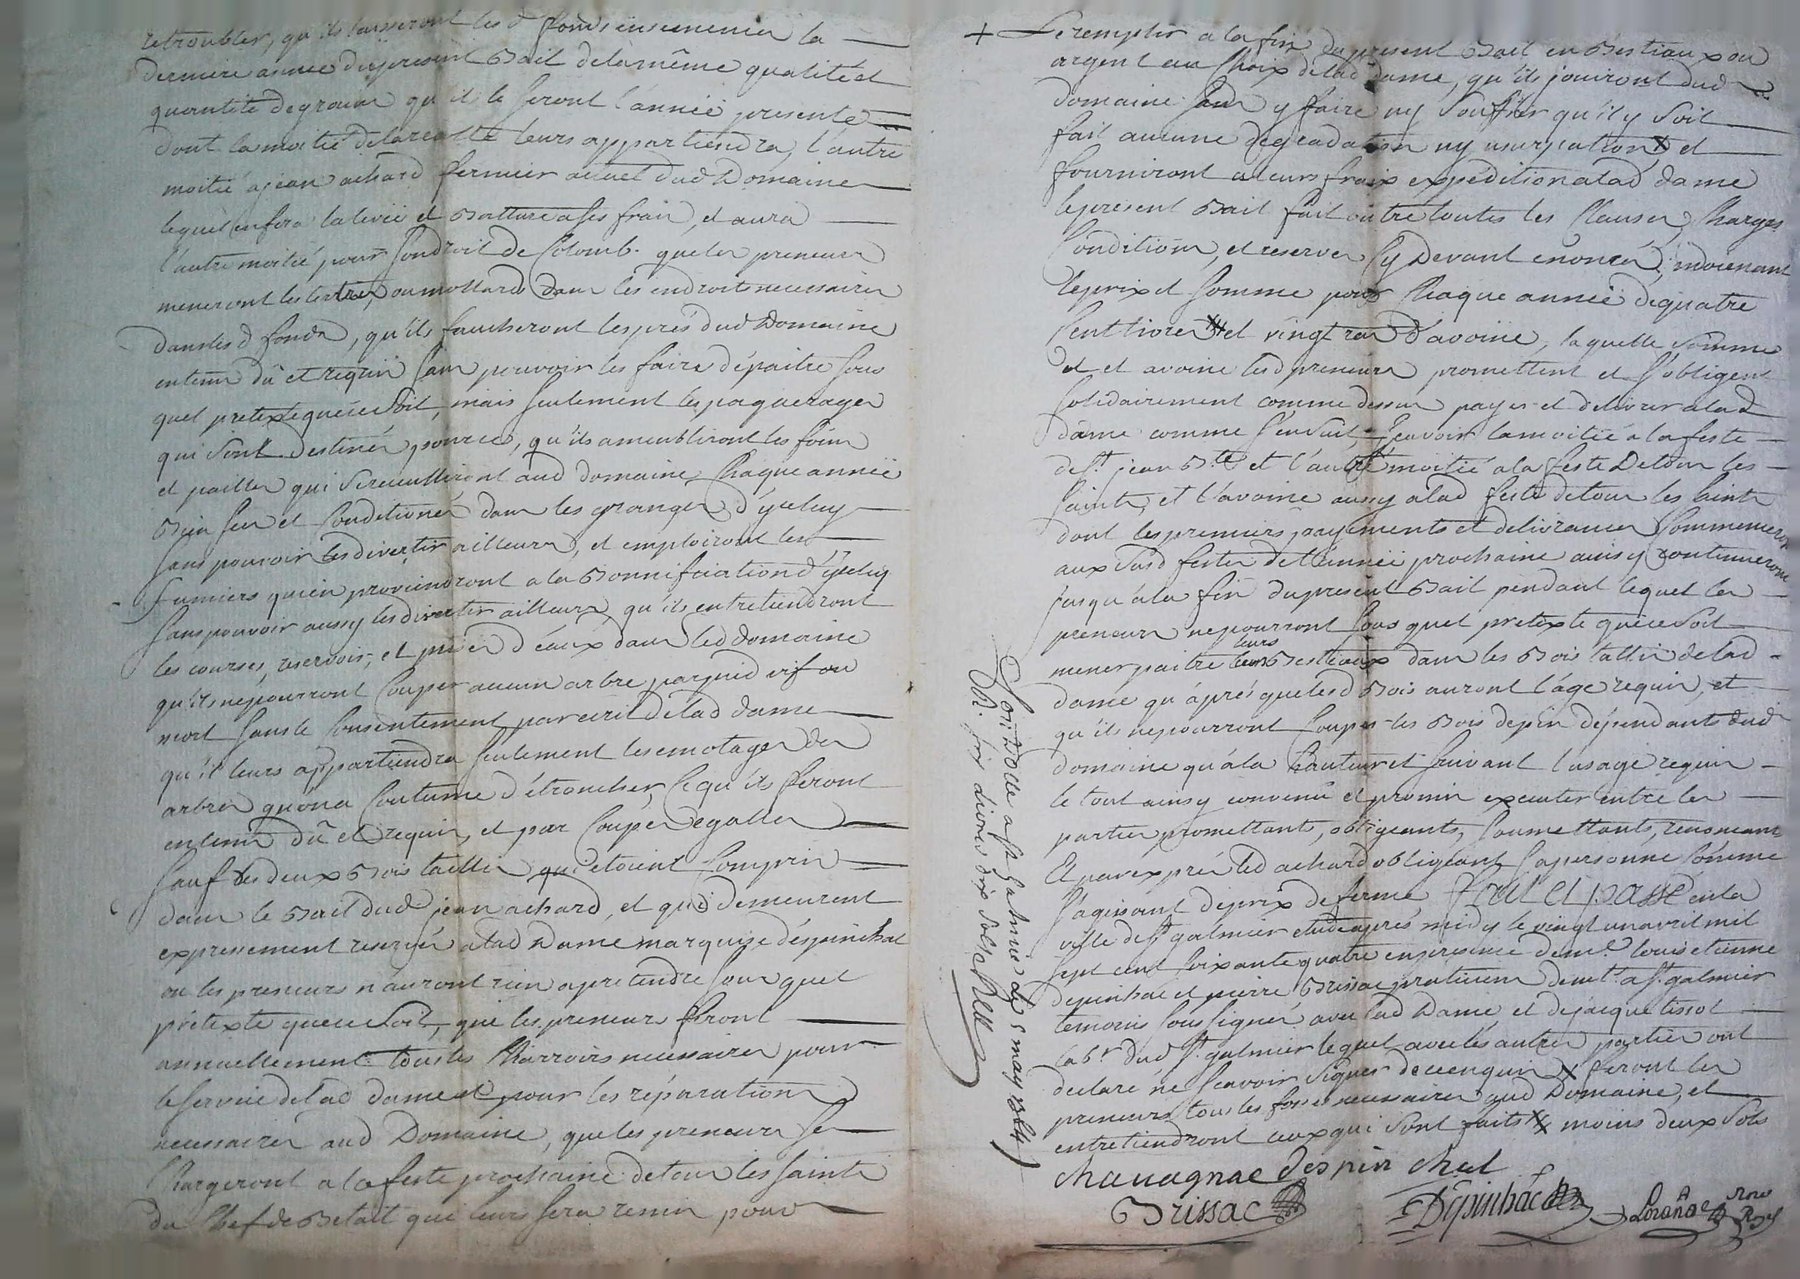 retroubler, qu'ils laisseront les d. fonds ensemencés la
derniere année du present Bail de la même qualité et
quantité de grains qu'ils le seront l'année presente
dont la moitié de la recolte leurs appartiendra, l'autre
moitié a jean achard fermier actuel dud Domaine
lequel en fera la levée et Batture a ses frais, et aura
l'autre moitié pour son droit de Colomb. que les preneurs
meneront les tertres ou mottards dans les endroits necessaires
dans les d. fonds, qu'ils faucheront les prés dud Domaine
en tems dû et requis sans pouvoir les faire dépaitre sous
quel pretexte que ce soit, mais seulement les paquerages
qui sont destinés pour ce, qu'ils ameubliront les foins
et pailles qui se recueilliront aud domaine Chaque année
Bien sec et Conditionés dans les granges d'yceluy
sans pouvoir les divertir ailleurs, et emploiront les
fumiers qui en proviendront a la Bonnification d'yceluy
sans pouvoir aussy les divertir ailleurs, qu'ils entretiendront
les courses, reservoirs, et prises d'eaux dans led domaine
qu'ils ne pourront Couper aucun arbre par pied vif ou
mort sans le Consentement par ecrit de lad dame
qu'il leurs appartiendra seulement les emotages des
arbres qu'on a Coutume d'étroncher, Ce qu'ils feront
en tems dû et requis, et par Coupes egalles
sauf des deux Bois taillis qui etoient Compris
dans le Bail dud jean achard, et qui demeurent
expressement reservés a lad Dame marquise d'espinchal
ou les preneurs n'auront rien a pretendre sous quel
pretexte que ce soit, que les preneurs feront
annuellement tous les Charrois necessaires pour
le service de lad dame et pour les réparations
necessaires aud Domaine, que les preneurs se
Chargeront a la feste prochaine de tous les saints
du Chef de Betail qui leurs sera remis pour
+ Le remplir a la fin du present Bail en Bestiaux ou
argent au Choix de lad dame, qu'ils jouiront dud
domaine sans y faire ny souffrir qu'il y soit
fait aucune degradation ny usurpation X et
fourniront a leurs frais expedition a lad dame
le present Bail fait outre toutes les Clauses, Charges
Conditions, et reserves Cy Devant enoncés, moienant
le prix et somme pour Chaque année de quatre
Cent livres X et vingt ras d'avoine, laquelle somme
et avoine lesd preneurs promettent et s'obligent
solidairement comme dessus payer et delivrer a lad
dame comme s'ensuit, sçavoir la moitié a la feste
de St. jean Bte. et l'autre moitié a la feste De tous les
saints, et l'avoine aussy a lad feste de tous les saints
dont les premiers payements et delivrances Commenceront
aux susd festes de l'année prochaine ainsy continueront
jusqu'a la fin du present Bail pendant lequel les
preneurs ne pourront sous quel pretexte que ce soit
mener paitre leurs Bestiaux dans les Bois taillis de lad
dame qu'après que lesd Bois auront l'âge requis, et
qu'ils ne pourront Couper les Bois de pin dépendants dud
domaine qu'à la hauteur et suivant l'usage requis
le tout ainsy convenû et promis executer entre les
parties promettants, obligeants, soumettants, renonçant
Et par exprés led achard obligeant sa personne Comme
s'agissant de prix de ferme fait et passé en la
ville de St. galmier etude après midy le vingt un avril mil
sept cent soixante quatre en presence de mr. louis etienne
depinhac et pierre Brissac praticien demt. a St. galmier
temoins soussignés avec lad Dame et de jacque tissot
labr. dud St. galmier lequel avec les autres parties ont
declaré ne sçavoir signer de ce enquis X feront les
preneurs tous les fossés necessaires aud Domaine, et
entretiendront ceux qui sont faits X moins deux sols
Controllé a St. galmier le 5 may 1764
chauagnac despinchal
Brissac
Depinhac